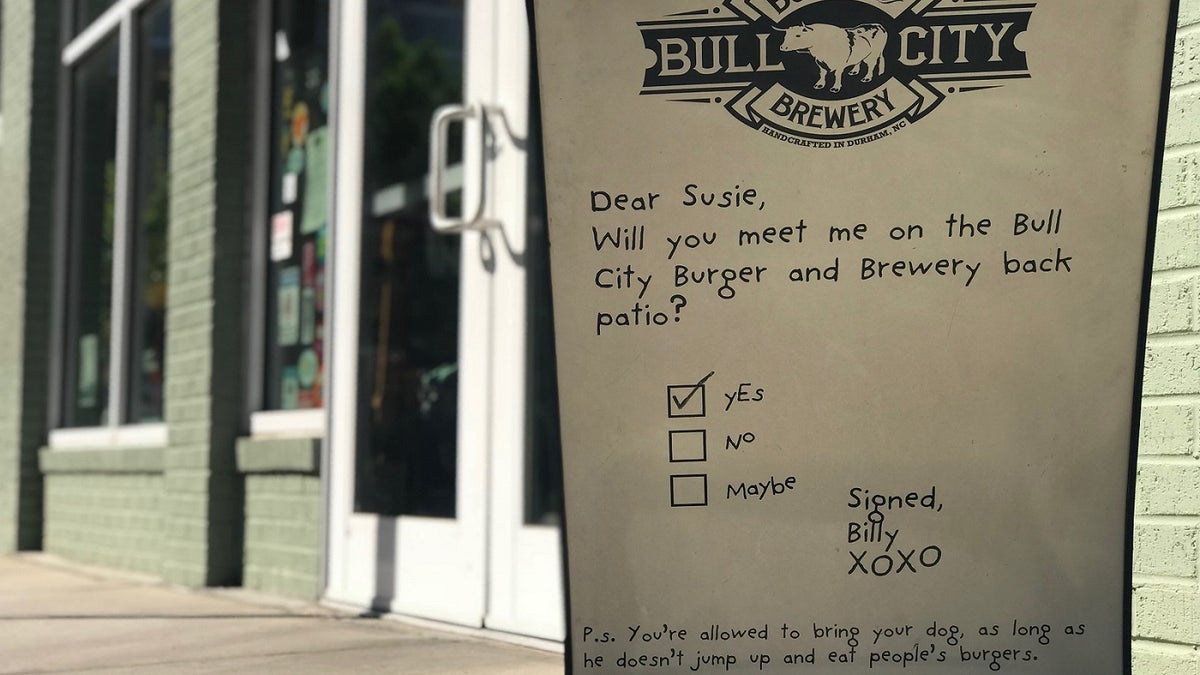 BULL CITY
BREWERY
HANDCRAFTED IN DURHAM, NC
Dear Susie,
Will you meet me on the Bull
City Burger and Brewery back
patio?
yEs
No
Maybe
Signed,
Billy
XOXO
P.s. You're allowed to bring your dog, as long as
he doesn't jump up and eat people's burgers.